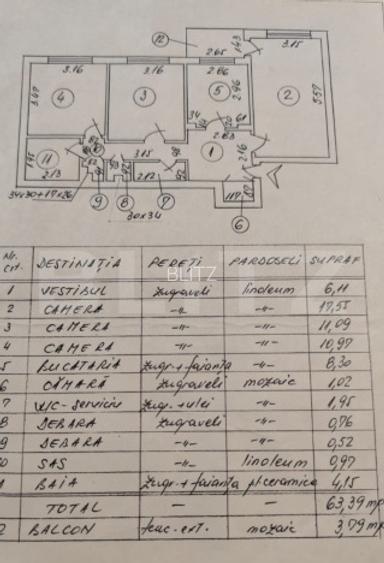 12
2.65
1.43
3.15
3.16
3.16
2.86
3.47
4
3
5
2.96
2
5.57
34
20
61
2.83
11
1.95
2.13
3.15
98
1
2.16
2.12
92
34x30+17x26
9
8
30x34
7
117
87
6
Nr. crt. DESTINAȚIA PEREȚI PARDOSELI SUPRAF
1 VESTIBUL zugraveli linoleum 6,11
2 CAMERA -"- -"- 17,55
3 CAMERA -"- -"- 11,09
4 CAMERA -"- -"- 10,97
5 BUCATARIA zugr.+faianța -"- 8,30
6 CĂMARĂ zugraveli mozaic 1,02
7 W/C-serviciu zugr.+ulei -"- 1,95
8 DEBARA zugraveli -"- 0,76
9 DEBARA -"- -"- 0,52
0 SAS -"- linoleum 0,97
1 BAIA zugr.+faianța pl.ceramica 4,15
TOTAL — — 63,39 mp
2 BALCON tenc.ext. mozaic 3,79 mp
BLITZ